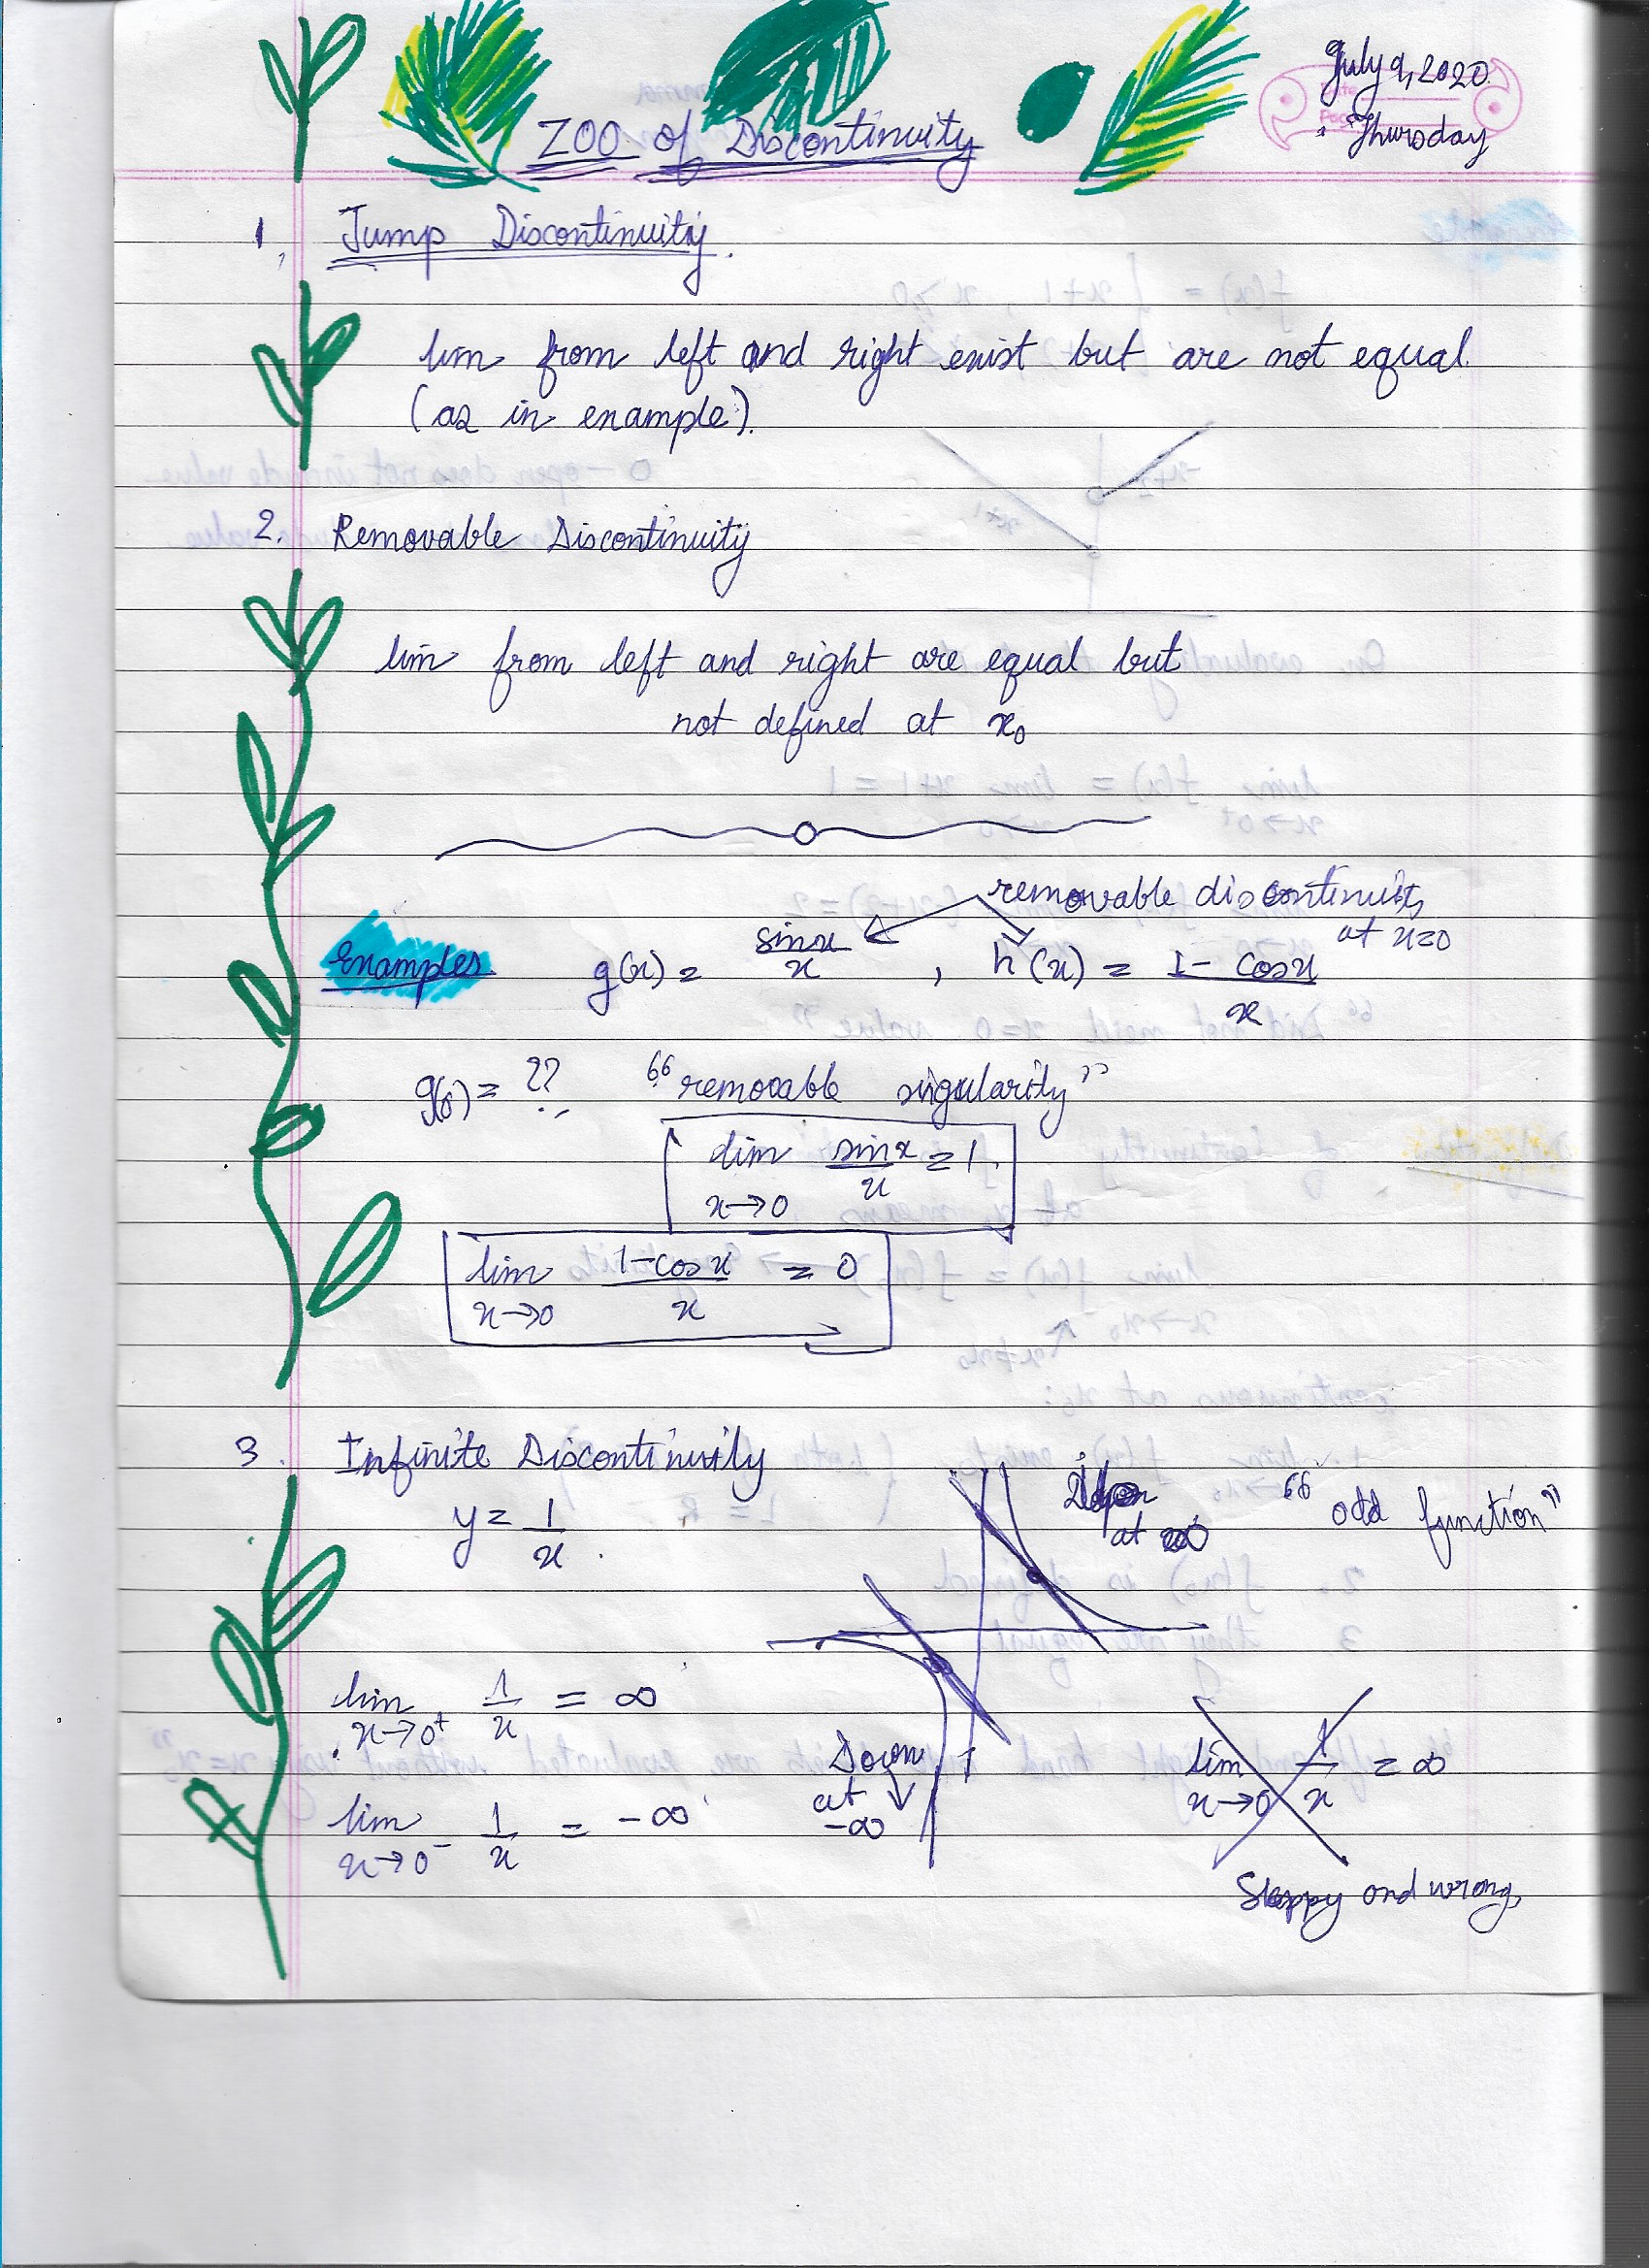 July 9, 2020
Thursday
ZOO of Discontinuity
1, Jump Discontinuity.
lim from left and right exist but are not equal.
(as in example).
2. Removable Discontinuity
lim from left and right are equal but
not defined at x₀
removable discontinuity
at x=0
Examples g(x) = sinx/x , h(x) = 1 - cosx/x
g(0) = ?? "removable singularity"
lim x→0 sinx/x = 1.
lim x→0 1-cosx/x = 0
3. Infinite Discontinuity
y = 1/x.
at ∞
"odd function"
lim x→0⁺ 1/x = ∞
Down
at
-∞
lim x→0 1/x = ∞
lim x→0⁻ 1/x = -∞
Sloppy and wrong,